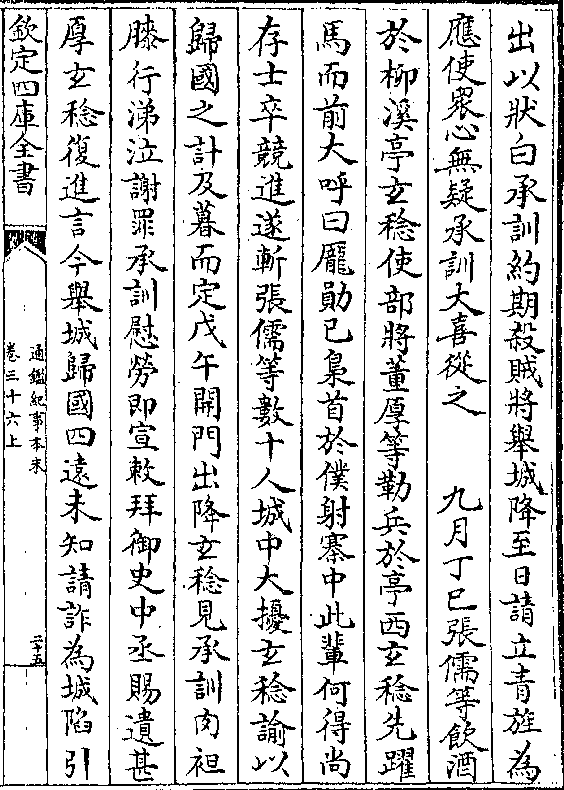 出以狀白承訓約期殺賊將舉城降至日請立青旌為
應使衆心無疑承訓大喜從之　九月丁巳張儒等飲酒
於柳溪亭玄稔使部將董厚等勒兵於亭西玄稔先躍
馬而前大呼曰龎勛已梟首於僕射寨中此輩何得尚
存士卒競進遂斬張儒等數十人城中大擾玄稔諭以
歸國之計及暮而定戊午開門出降玄稔見承訓肉袒
膝行涕泣謝罪承訓慰勞即宣敕拜御史中丞賜遺甚
厚玄稔復進言今舉城歸國四遠未知請詐為城陷引
欽定四庫全書
通鑑紀事本末
卷三十六上
二十五